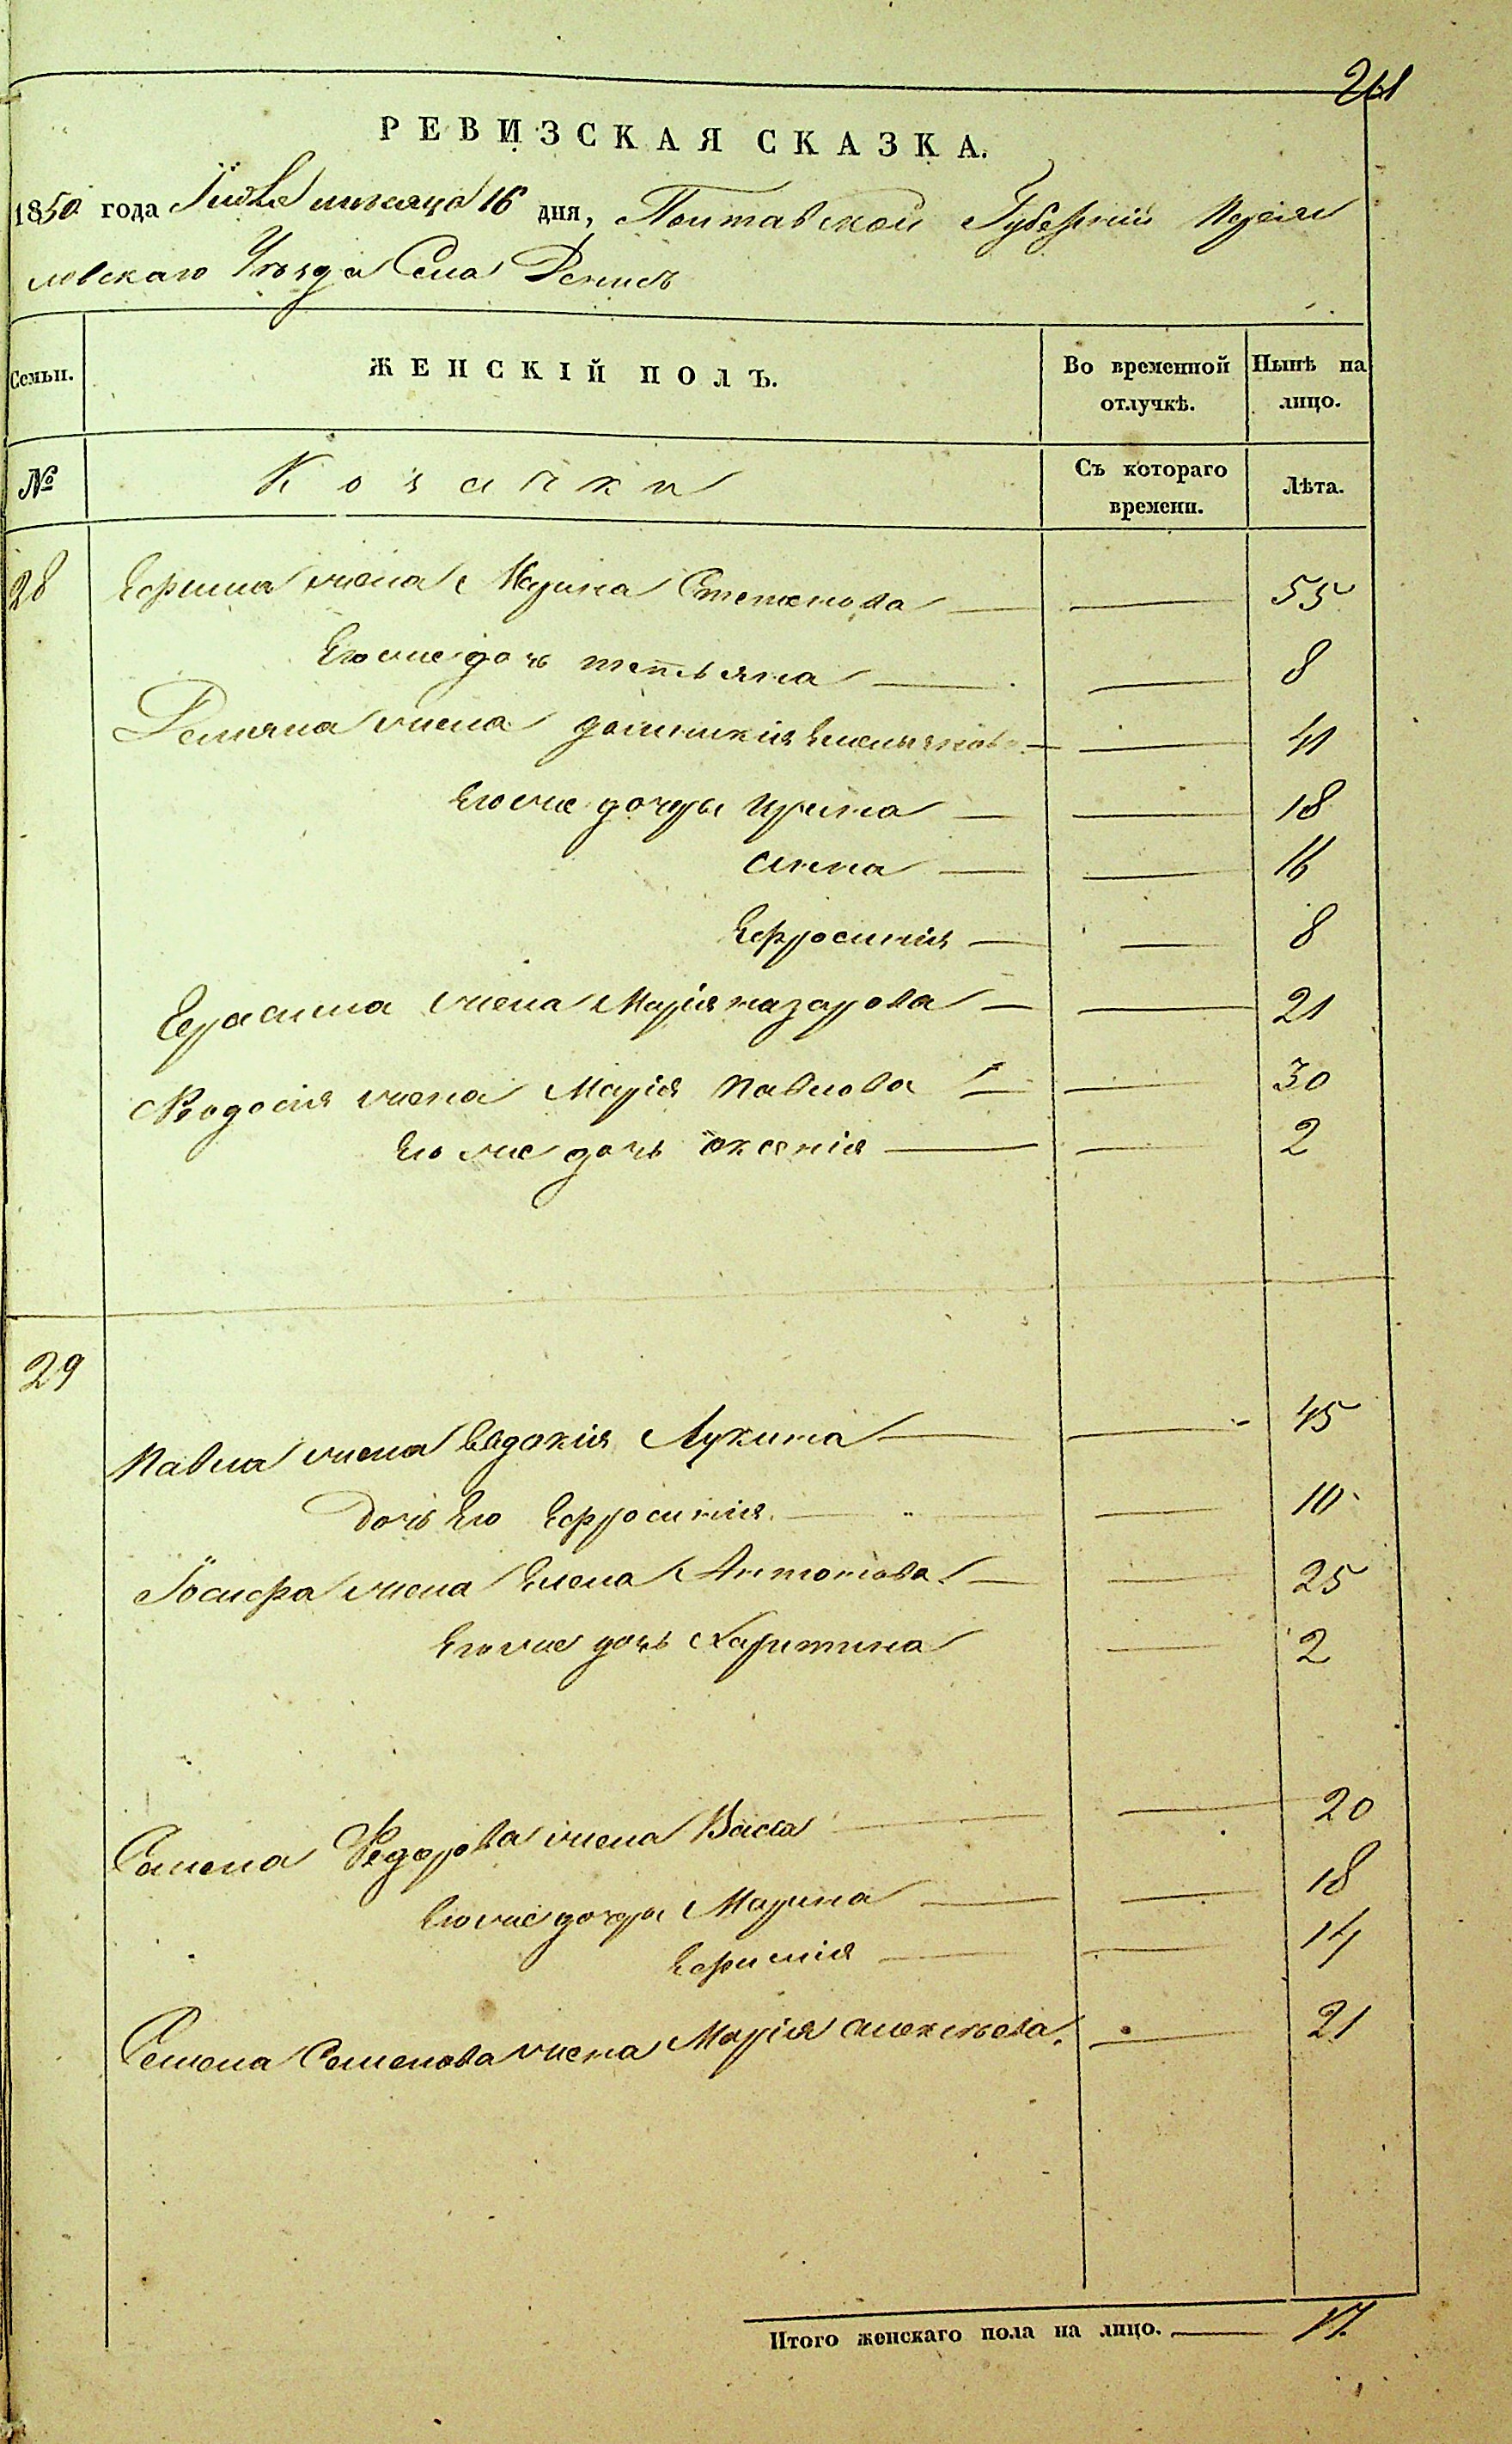 261
РЕВИЗСКАЯ СКАЗКА.
1850 года Июля месяца 16 дня, Полтавской Губерніи Переяс
ловскаго Уѣзда Села Денисъ
Семьи.
ЖЕНСКІЙ ПОЛЪ.
Во временной отлучкѣ.
Нынѣ на лицо.
№
Козачки
Съ котораго времени.
Лѣта.
28 Ефима жена Марина Степанова — — 55
Его же дочь Татьяна — — 8
Демьяна жена Домникія Емельянова — — 41
Его же дочери Ирина — — 18
Анна — — 16
Ефросинія — — 8
Герасима жена Марія Назарова — — 21
Феодосія жена Марія Павлова — — 30
Его же дочь Оксенія — — 2
29
Павла жена Евдокія Лукина — — 45
Дочь Его Ефросинія — — 10
Іосифа жена Елена Антонова — — 25
Его же дочь Харитина — 2
Семена Федорова жена Васса — — 20
Его же дочери Марина — — 18
Ефимія — — 14
Семена Семенова жена Марія Алексѣева — 21
Итого женскаго пола на лицо. — 17.